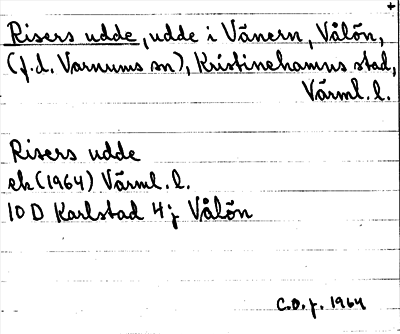 Risers udde, udde i Vänern, Vålön,
(f.d. Varnums sn), Kristinehamns stad,
Värml. l.
Risers udde
ek (1964) Värml. l.
10 D Karlstad 4 j Vålön
C.O.f. 1964